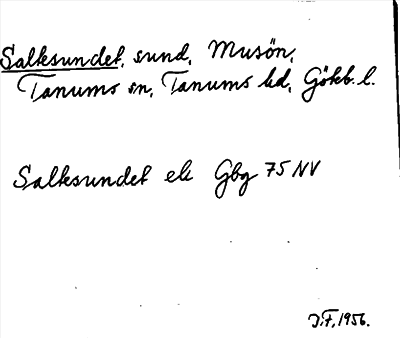 Saltesundet, sund, Musön,
Tanums sn, Tanums hd, Göteb. l.
Saltesundet ek Gbg 75 NV
J.F. 1956.